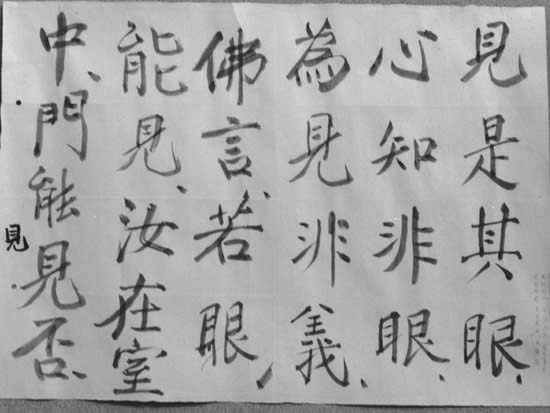 見是其眼、
心知非眼、
為見非義、
佛言、若眼、
能見、汝在室
中、門能見否、
見